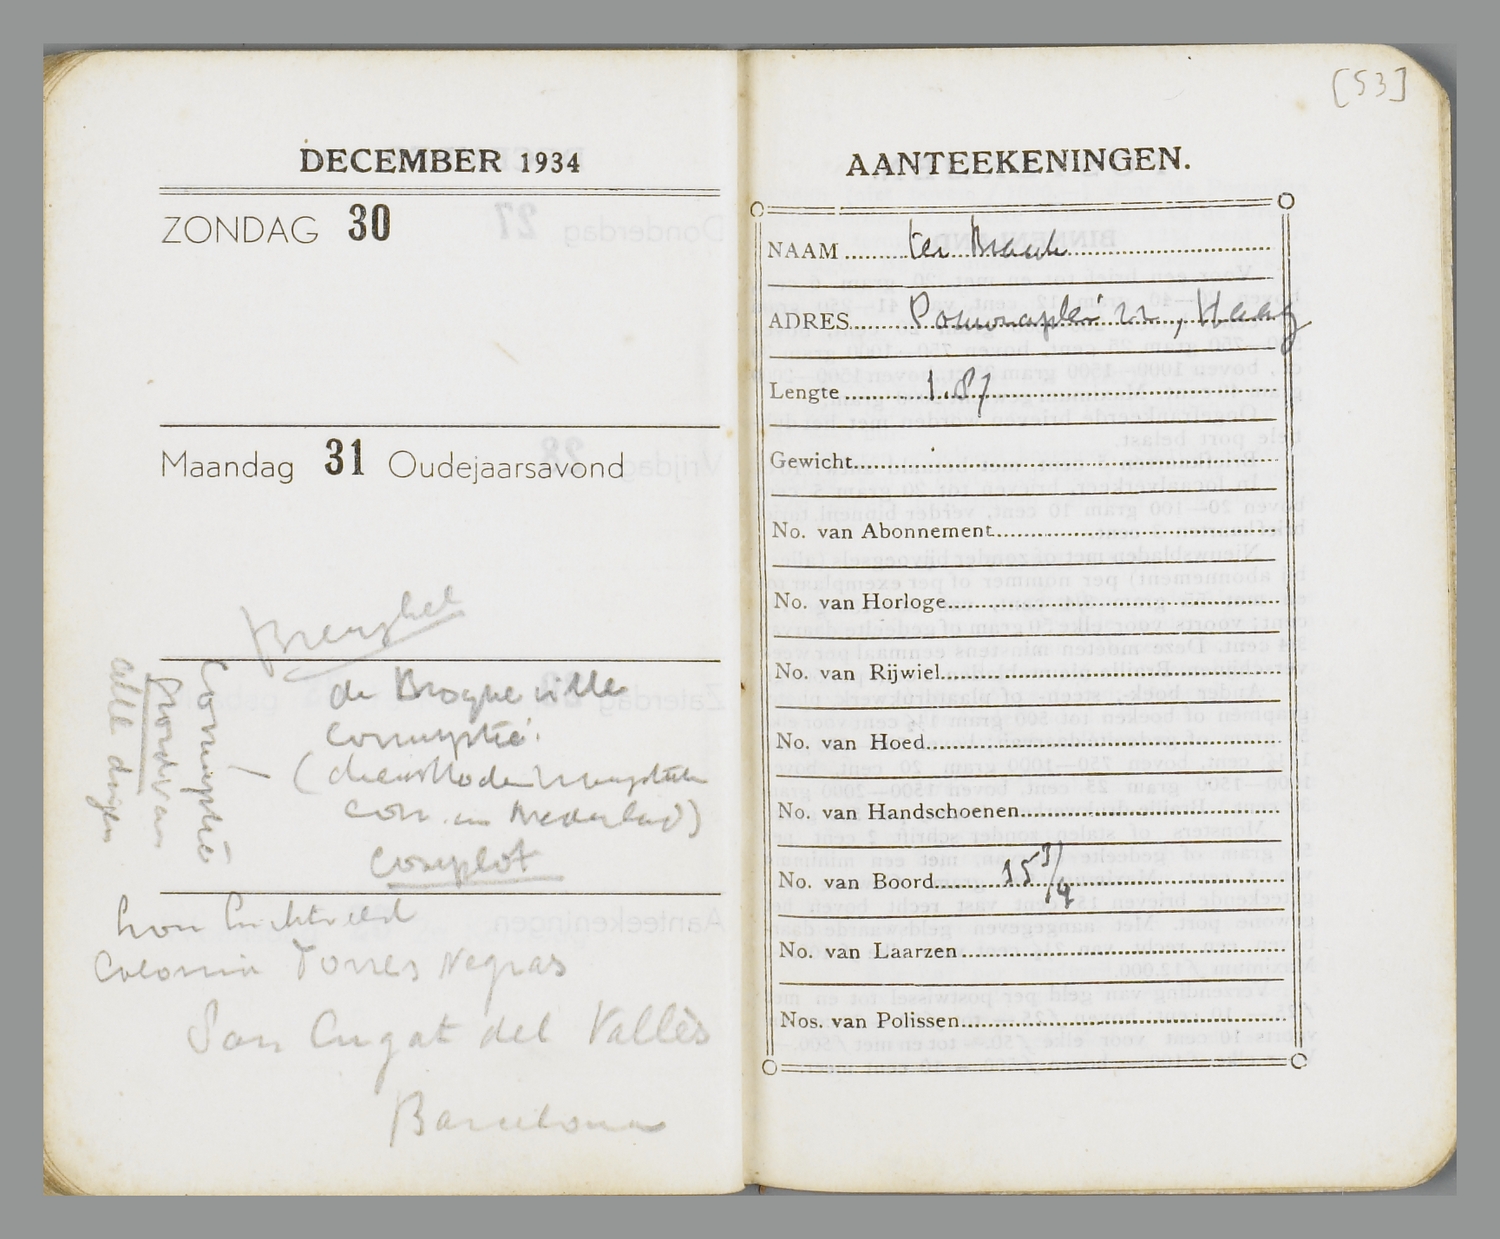 DECEMBER 1934
ZONDAG 30
Maandag 31 Oudejaarsavond
Breughel
de Broqueville
corruptie!
(
corr. in Nederland)
complot
Corruptie —
Moord van
alle dingen
von
Colonia Torres Negras
San Cugat del Vallès
Barcelona
[53]
AANTEEKENINGEN.
NAAM ter Braak
ADRES Pomonaplein 22, Haag
Lengte 1.87
Gewicht
No. van Abonnement
No. van Horloge
No. van Rijwiel
No. van Hoed
No. van Handschoenen
No. van Boord 15 3/4
No. van Laarzen
Nos. van Polissen